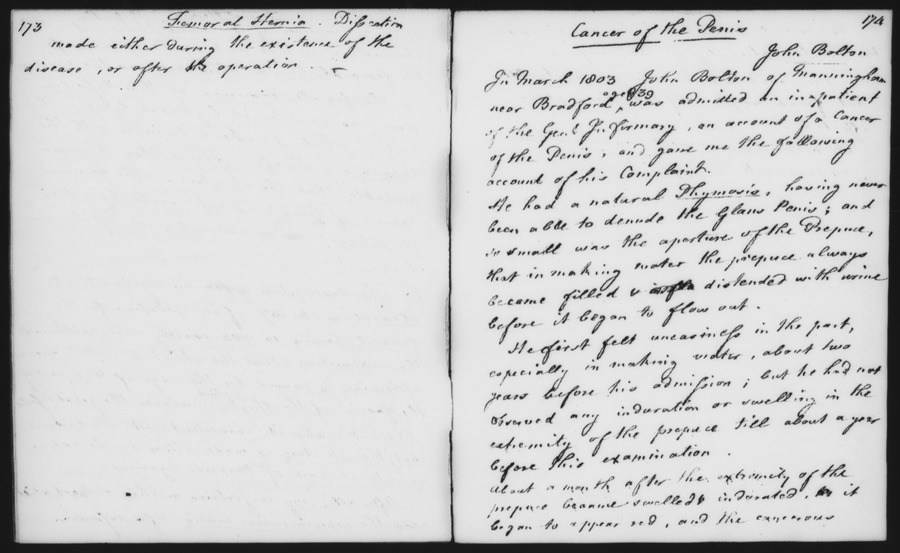 173
Femoral Hernia. Dissection
made either during the existence of the
disease, or after the operation.
174
Cancer of the Penis
John Bolton
In March 1803 John Bolton of Manningham
near Bradford, aged 39 was admitted an inpatient
of the Genl Infirmary, on account of a Cancer
of the Penis, and gave me the following
account of his Complaint.
He had a natural Phymosis, having never
been able to denude the Glans Penis; and
so small was the aperture of the Prepuce,
that in making water the prepuce always
became filled & distended with urine
before it began to flow out.
He first felt uneasiness in the part,
especially in making water, about two
years before his admission; but he had not
observed any induration or swelling in the
extremity of the prepuce till about a year
before this examination.
About a month after the extremity of the
prepuce became swelled & indurated, it
began to appear red, and the cancerous